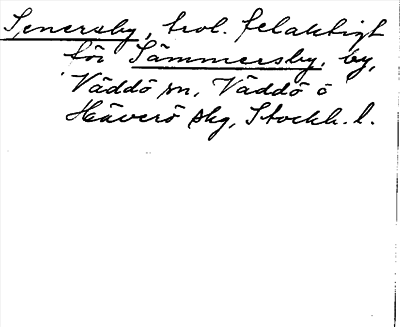 Senersby, trol. felaktigt
för Sämmersby, by,
Väddö sn, Väddö o
Häverö skg, Stockh. l.